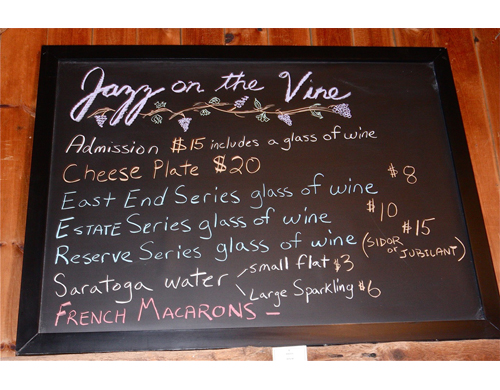 Jazz on the Vine
Admission $15 includes a glass of wine
Cheese Plate $20
East End Series glass of wine $8
ESTATE Series glass of wine $10
Reserve Series glass of wine $15
(SIDOR or JUBILANT)
Saratoga water small flat $3
Large Sparkling $6
FRENCH MACARONS –